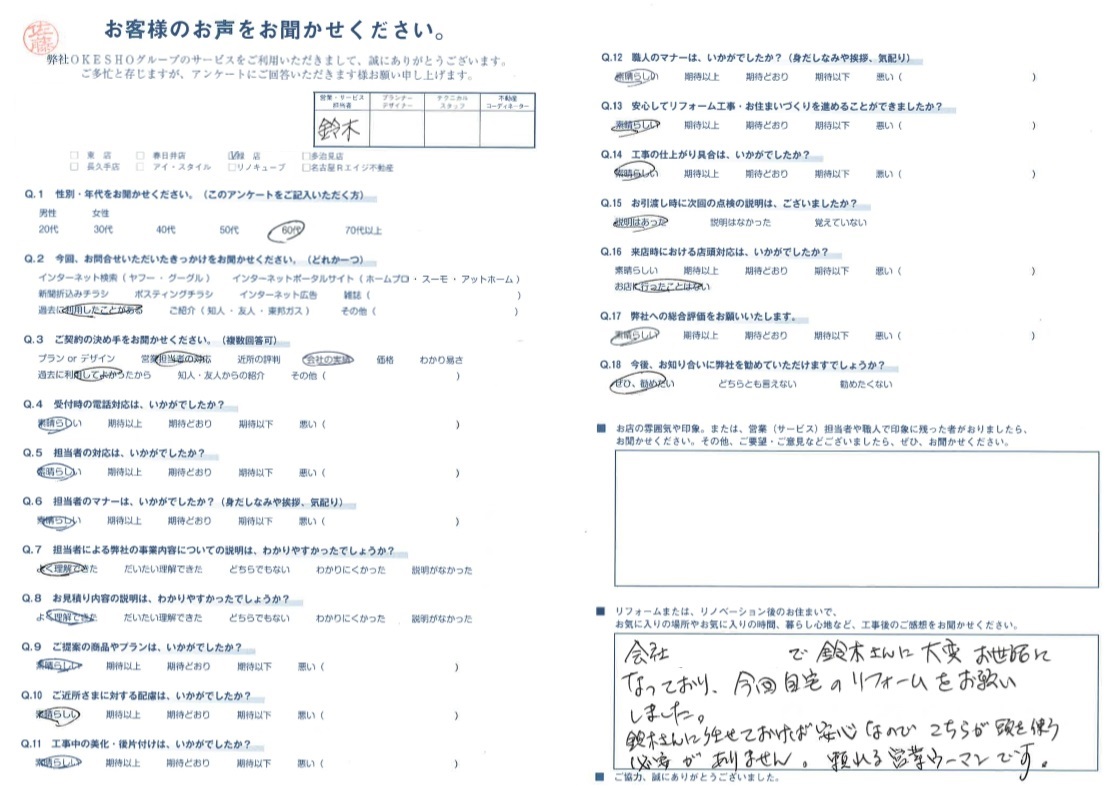 佐藤
お客様のお声をお聞かせください。
弊社OKESHOグループのサービスをご利用いただきまして、誠にありがとうございます。
ご多忙と存じますが、アンケートにご回答いただきます様お願い申し上げます。
営業・サービス担当者 プランナーデザイナー テクニカルスタッフ 不動産コーディネーター
鈴木
□ 東 店 □ 春日井店 ☑緑 店 □多治見店
□ 長久手店 □ アイ・スタイル □リノキューブ □名古屋Rエイジ不動産
Q.1 性別・年代をお聞かせください。（このアンケートをご記入いただく方）
男性 女性
20代 30代 40代 50代 60代 70代以上
Q.2 今回、お問合せいただいたきっかけをお聞かせください。（どれか一つ）
インターネット検索（ ヤフー ・ グーグル ） インターネットポータルサイト（ ホームプロ ・ スーモ ・ アットホーム ）
新聞折込みチラシ ポスティングチラシ インターネット広告 雑誌（ ）
過去に利用したことがある ご紹介（ 知人 ・ 友人 ・ 東邦ガス ） その他（ ）
Q.3 ご契約の決め手をお聞かせください。（複数回答可）
プラン or デザイン 営業担当者の対応 近所の評判 会社の実績 価格 わかり易さ
過去に利用してよかったから 知人・友人からの紹介 その他（ ）
Q.4 受付時の電話対応は、いかがでしたか？
素晴らしい 期待以上 期待どおり 期待以下 悪い（ ）
Q.5 担当者の対応は、いかがでしたか？
素晴らしい 期待以上 期待どおり 期待以下 悪い（ ）
Q.6 担当者のマナーは、いかがでしたか？（身だしなみや挨拶、気配り）
素晴らしい 期待以上 期待どおり 期待以下 悪い（ ）
Q.7 担当者による弊社の事業内容についての説明は、わかりやすかったでしょうか？
よく理解できた だいたい理解できた どちらでもない わかりにくかった 説明がなかった
Q.8 お見積り内容の説明は、わかりやすかったでしょうか？
よく理解できた だいたい理解できた どちらでもない わかりにくかった 説明がなかった
Q.9 ご提案の商品やプランは、いかがでしたか？
素晴らしい 期待以上 期待どおり 期待以下 悪い（ ）
Q.10 ご近所さまに対する配慮は、いかがでしたか？
素晴らしい 期待以上 期待どおり 期待以下 悪い（ ）
Q.11 工事中の美化・後片付けは、いかがでしたか？
素晴らしい 期待以上 期待どおり 期待以下 悪い（ ）
Q.12 職人のマナーは、いかがでしたか？（身だしなみや挨拶、気配り）
素晴らしい 期待以上 期待どおり 期待以下 悪い（ ）
Q.13 安心してリフォーム工事・お住まいづくりを進めることができましたか？
素晴らしい 期待以上 期待どおり 期待以下 悪い（ ）
Q.14 工事の仕上がり具合は、いかがでしたか？
素晴らしい 期待以上 期待どおり 期待以下 悪い（ ）
Q.15 お引渡し時に次回の点検の説明は、ございましたか？
説明はあった 説明はなかった 覚えていない
Q.16 来店時における店頭対応は、いかがでしたか？
素晴らしい 期待以上 期待どおり 期待以下 悪い（ ）
お店に行ったことはない
Q.17 弊社への総合評価をお願いいたします。
素晴らしい 期待以上 期待どおり 期待以下 悪い（ ）
Q.18 今後、お知り合いに弊社を勧めていただけますでしょうか？
ぜひ、勧めたい どちらとも言えない 勧めたくない
■ お店の雰囲気や印象。または、営業（サービス）担当者や職人で印象に残った者がおりましたら、
お聞かせください。その他、ご要望・ご意見などございましたら、ぜひ、お聞かせください。
■ リフォームまたは、リノベーション後のお住まいで、
お気に入りの場所やお気に入りの時間、暮らし心地など、工事後のご感想をお聞かせください。
会社 で 鈴木さんに 大変 お世話に
なっており、今回自宅のリフォームをお願い
しました。
鈴木さんに任せておけば安心なので こちらが頭を使う
必要がありません。頼れる営業ウーマンです。
■ ご協力、誠にありがとうございました。